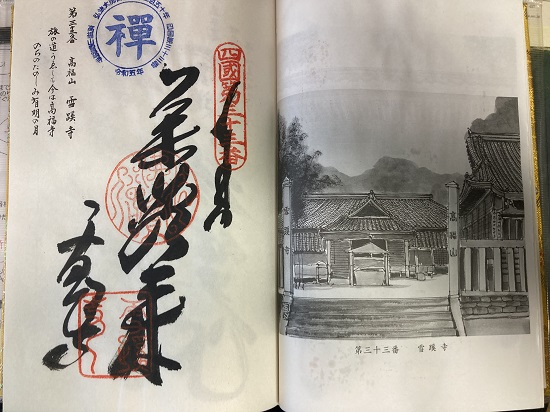 四國第三十三番
禪
令和五年
薬師如来
雪蹊寺
第三十三番　高福山　雪蹊寺
旅の道うゑしも今は高福寺
のちのたのしみ有明の月
高福山
雪蹊寺
第三十三番　雪蹊寺